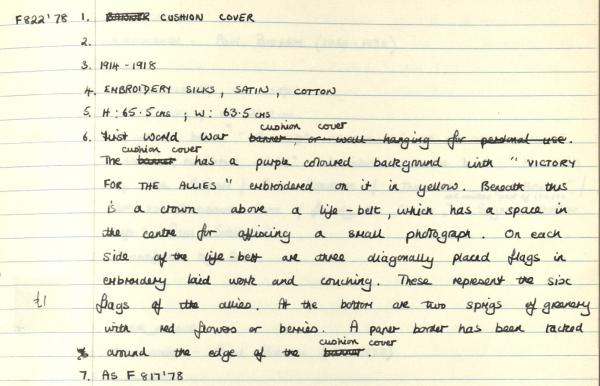 F822'78 1. BANNER CUSHION COVER
2.
3. 1914-1918
4. EMBROIDERY SILKS, SATIN, COTTON
5. H: 65.5 cms ; W: 63.5 cms
cushion cover
6. First World War banner, or wall-hanging for personal use.
cushion cover
The banner has a purple coloured background with "VICTORY
FOR THE ALLIES" embroidered on it in yellow. Beneath this
is a crown above a life-belt, which has a space in
the centre for affixing a small photograph. On each
side of the life-belt are three diagonally placed flags in
embroidery laid work and couching. These represent the six
£1 flags of the allies. At the bottom are two sprigs of greenery
with red flowers or berries. A paper border has been tacked
cushion cover
around the edge of the banner.
7. AS F 817'78